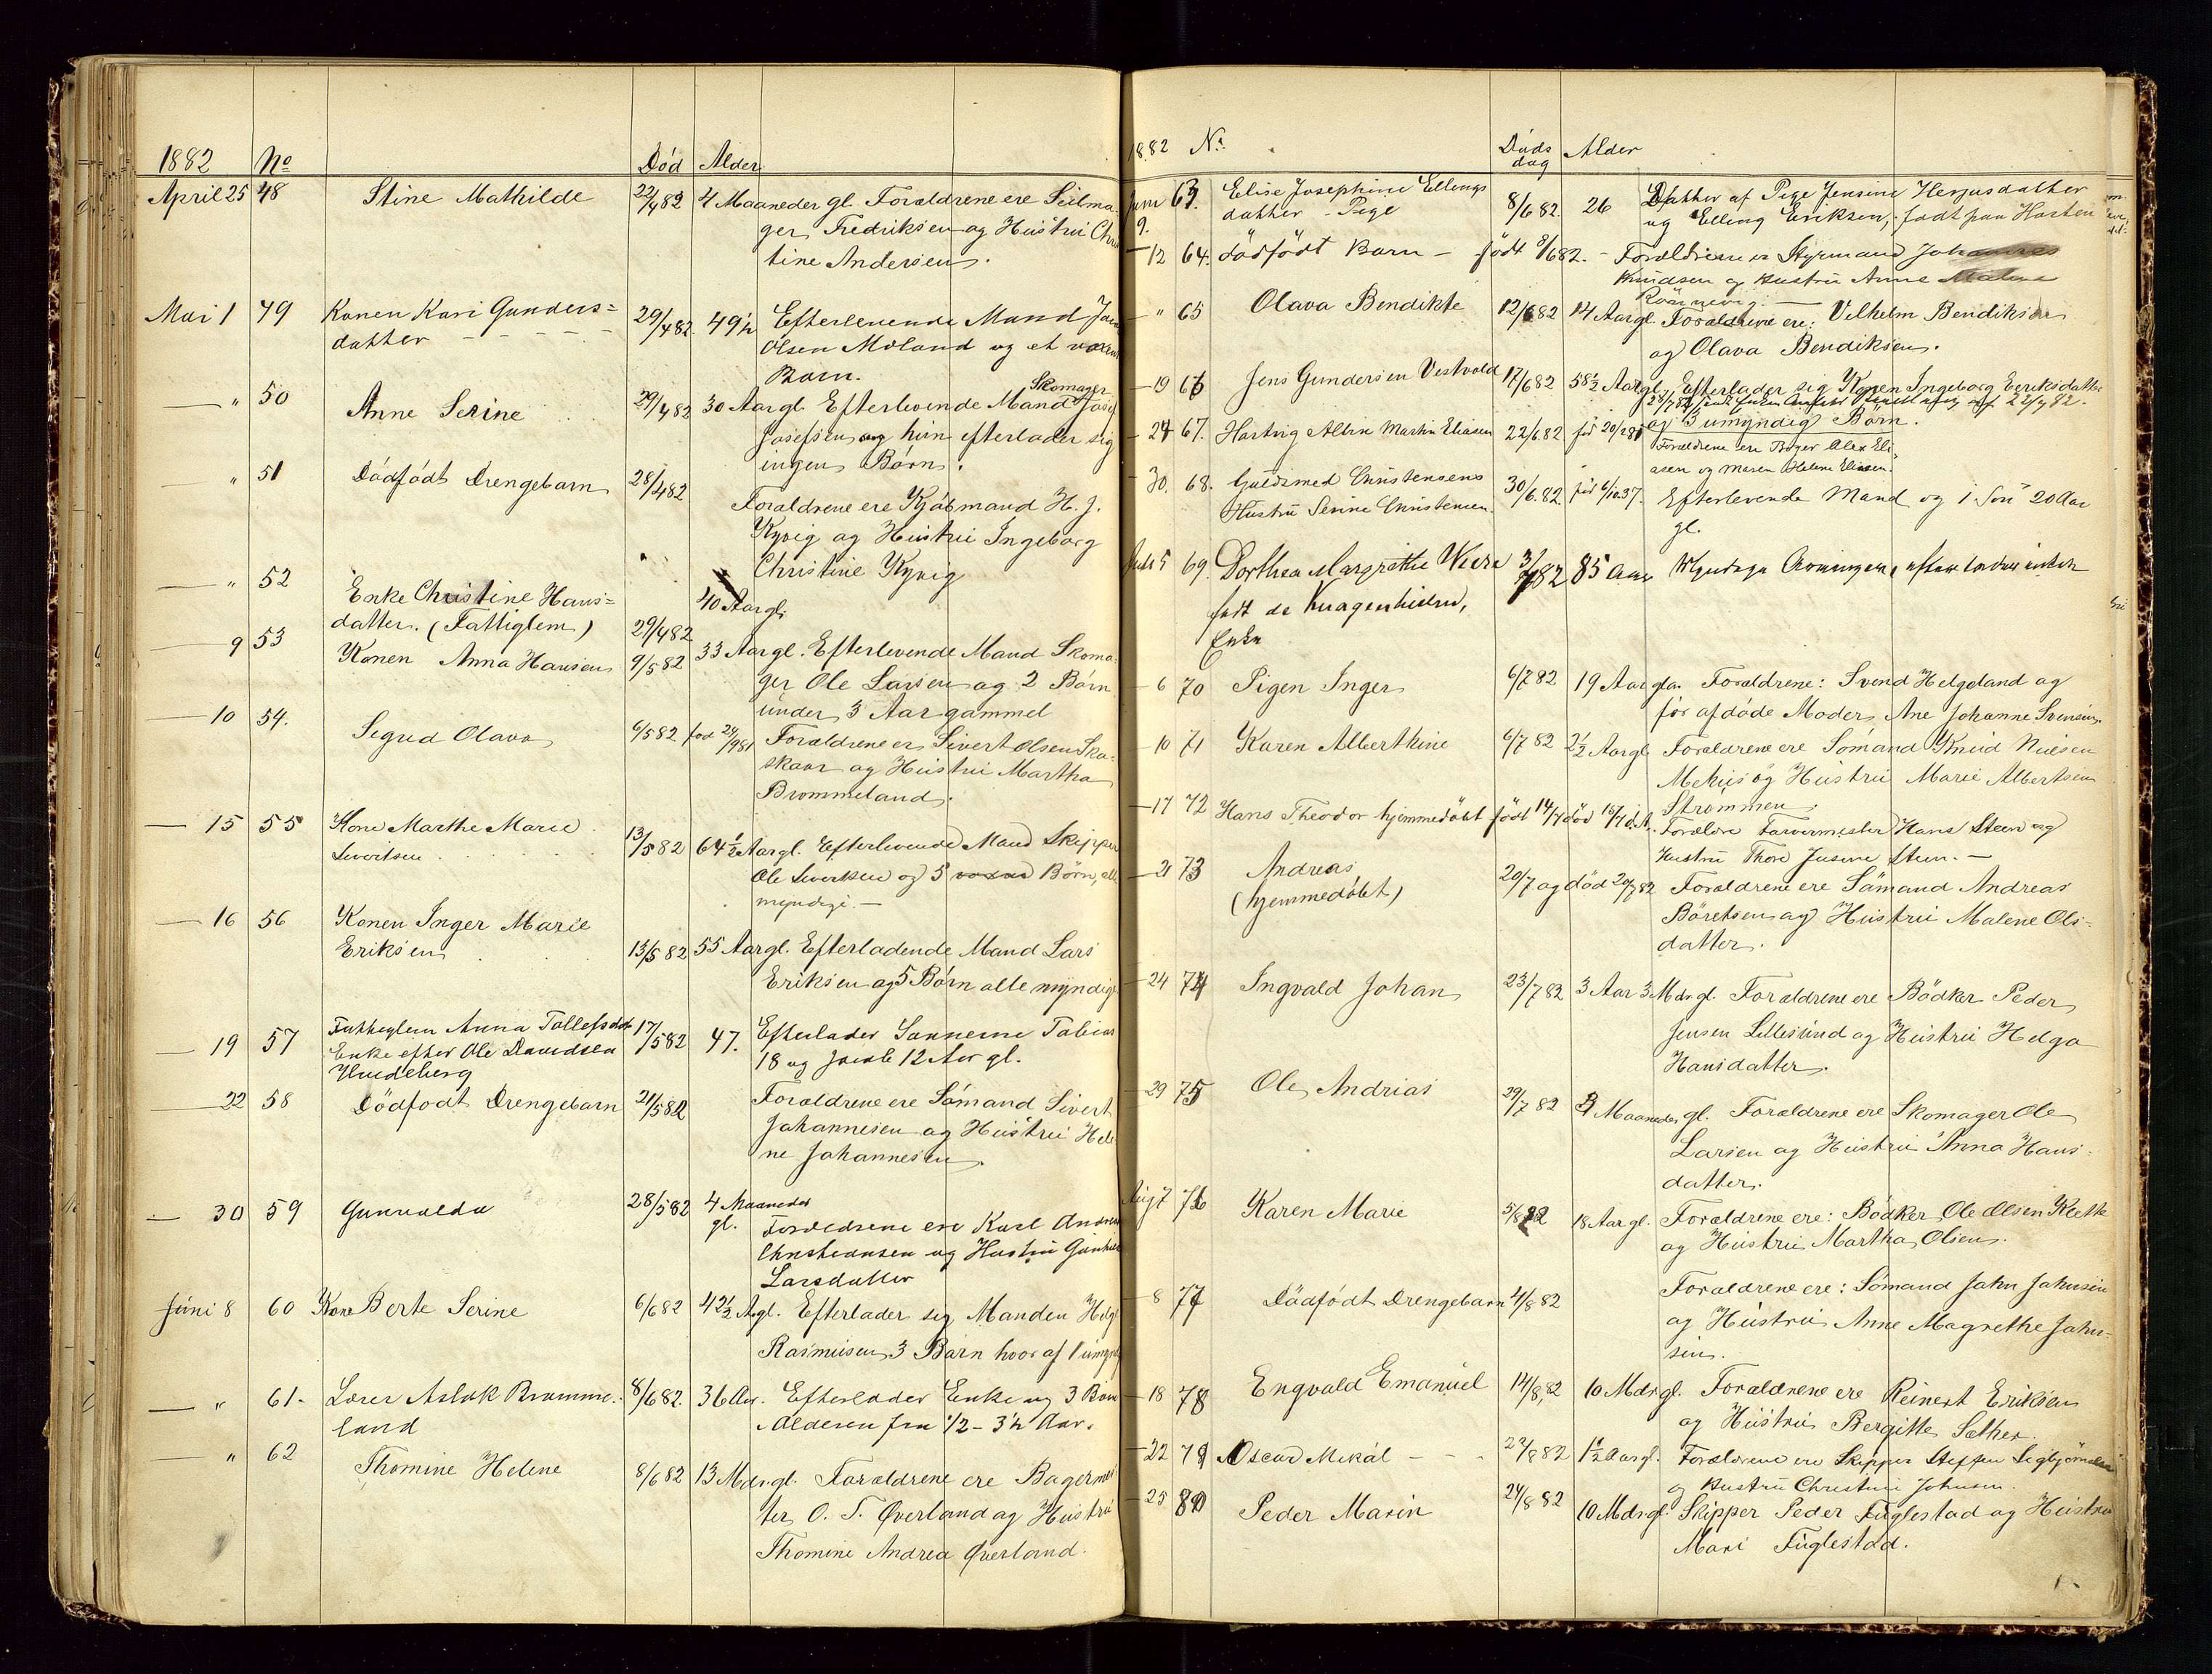 1882 No Død Alder
April 25 48 Stine Mathilde 22/4 82 4 Maaneder gl. Forældrene ere Seilma-
ger Fredriksen og Hustru Chri
tine Andersen.
Mai 1 49 Konen Kari Gunders= 29/4 82 49½ Efterlevende Mand
datter Olsen Moland og et voxen
Barn.
" 50 Anne Serine 29/4 82 30 Aar gl. Efterlevende Mand Skomager
Josefsen og hun efterlader sig
ingen Børn.
" 51 Dødfødt Drengebarn 28/4 82
Forældrene ere Kjøbmand H. J.
Kyvig og Hustru Ingeborg
Christine Kyvig
" 52 Enke Christine Hans= 40 Aar gl.
datter. (Fattiglem) 29/4 82
9 53 Konen Anna Hansen 9/5 82 33 Aar gl. Efterlevende Mand Skoma-
ger Ole Larsen og 2 Børn
under 3 Aar gammel
10 54. Sigrid Olava 6/5 82 fød 24/9 81 Forældrene er Sivert Olsen Ska-
skaar og Hustru Martha
Brommeland.
15 55 Kone Marthe Marie
Sivertsen 13/5 82 64½ Aar gl. Efterlevende Mand Skipper
Ole Sivertsen og 5 voxne Børn, alle
myndige. —
16 56 Konen Inger Marie
Eriksen 13/5 82 55 Aar gl. Efterladende Mand Lars
Eriksen og 5 Børn alle myndige
19 57 Fattiglem Anna Tollefsdatter 17/5 82 47. Efterlader Sønnerne Tobias
Enke efter Ole Davidsen 18 og Jacob 12 Aar gl.
Hundeberg
22 58 Dødfødt Drengebarn 21/5 82 Forældrene ere Sømand Sivert
Johannesen og Hustru Hele
ne Johannesen.
30 59 Gunvalda 28/5 82 4 Maaneder
gl. Forældrene ere Karl Andreas
Christiansen og Hustru
Larsdatter
Juni 8 60 Kone Berte Serine 6/6 82 42½ A. gl. Efterlader sig Manden Helge
Rasmusen, 3 Børn hvor af 1 umyndig
" 61. Lærer Aslak Bromme- 8/6 82. 36 Aar. Efterlader Enke og 3 Børn
land Alderen fra ½ – 3½ Aar.
" 62 Thomine Helene 8/6 82 13 Mdr gl. Forældrene ere Bagermes
ter O. T. Øverland og Hustru
Thomine Andrea Øverland.
1882 No. Døds Alder
dag
Juni 63. Elise Josephine Ellings 8/6 82. 26 Datter af Pige Jensine Herjusdatter
9. datter – Pige og Elling Eriksen, født paa
12 64. dødfødt Barn – født 8/6 82. – Forældrene er Styrmand Johannes
Knudsen og Hustru Anne Malene
Rønnevig.
" 65 Olava Bendikte 12/6 82 14 Aar gl. Forældrene ere: Vilhelm Bendiksen
og Olava Bendiksen.
19 66 Jens Gundersen Vestvold 17/6 82 58½ Aar gl. Efterlader sig Konen Ingeborg Eeriksdatter
og 3 umyndig Børn.
24 67. Hartvig Albin Martin Eliasen 22/6 82 Forældrene ere Bager Alex Eli-
asen og Maren Helene Eliasen.
30. 68. Guldsmed Christensens 30/6 82 fød 6/10 37. Efterlevende Mand og 1 Søn 20 Aar
Hustru Serine Christensen. gl.
Juli 5 69. Dorthea Margrethe 3/7 82 85 Aar Myndige Arvinger, efterlader intet
født de
Enke
6 70 Pigen Inger 6/7 82 19 Aar gl. Forældrene: Svend Helgeland og
før afdøde Moder, Ane Johanne Svensen
10 71 Karen Albertine 6/7 82 2½ Aar gl. Forældrene ere Sømand Knud Nielsen
og Hustru Marie Albertsen
Strømmen.
17 72 Hans Theodor hjemmedøbt født 14/7 død Forældre Farvermester Hans Steen og
Hustru Thora Jusine Steen. —
21 73 Andreas 20/7 og død 20/7 82 Forældrene ere Sømand Andreas
(hjemmedøbt) Børetsen og Hustru Malene Ols-
datter.
24 74 Ingvald Johan 23/7 82 3 Aar 3 Mdr gl. Forældrene ere Bødker Peder
Jensen Lillesund og Hustru Helga
Hansdatter.
29 75 Ole Andrias 29/7 82 Maaneder gl. Forældrene ere Skomager Ole
Larsen og Hustru Anna Hans-
datter.
Aug 7 76 Karen Marie 5/8 82 18 Aar gl. Forældrene ere: Bødker Ole Olsen Klette
og Hustru Martha Olsen.
8 77 Dødfødt Drengebarn 4/8 82 Forældrene ere: Sømand Jahn Jahnsen
og Hustru Anne Magrethe Jahn-
sen.
18 78 Engvald Emanuel 14/8 82 10 Mdr gl. Forældrene ere Reinert Eriksen
og Hustru Bergitte Sæther.
22 79 Oscar Mikal 22/8 82 1½ Aar gl. Forældrene ere Skipper Steffen Sigbjørnsen
og Hustru Christine Johnsen.
25 80 Peder Marin 24/8 82 10 Mdr gl. Skipper Peder Fuglestad og Hustru
Mari Fuglestad.